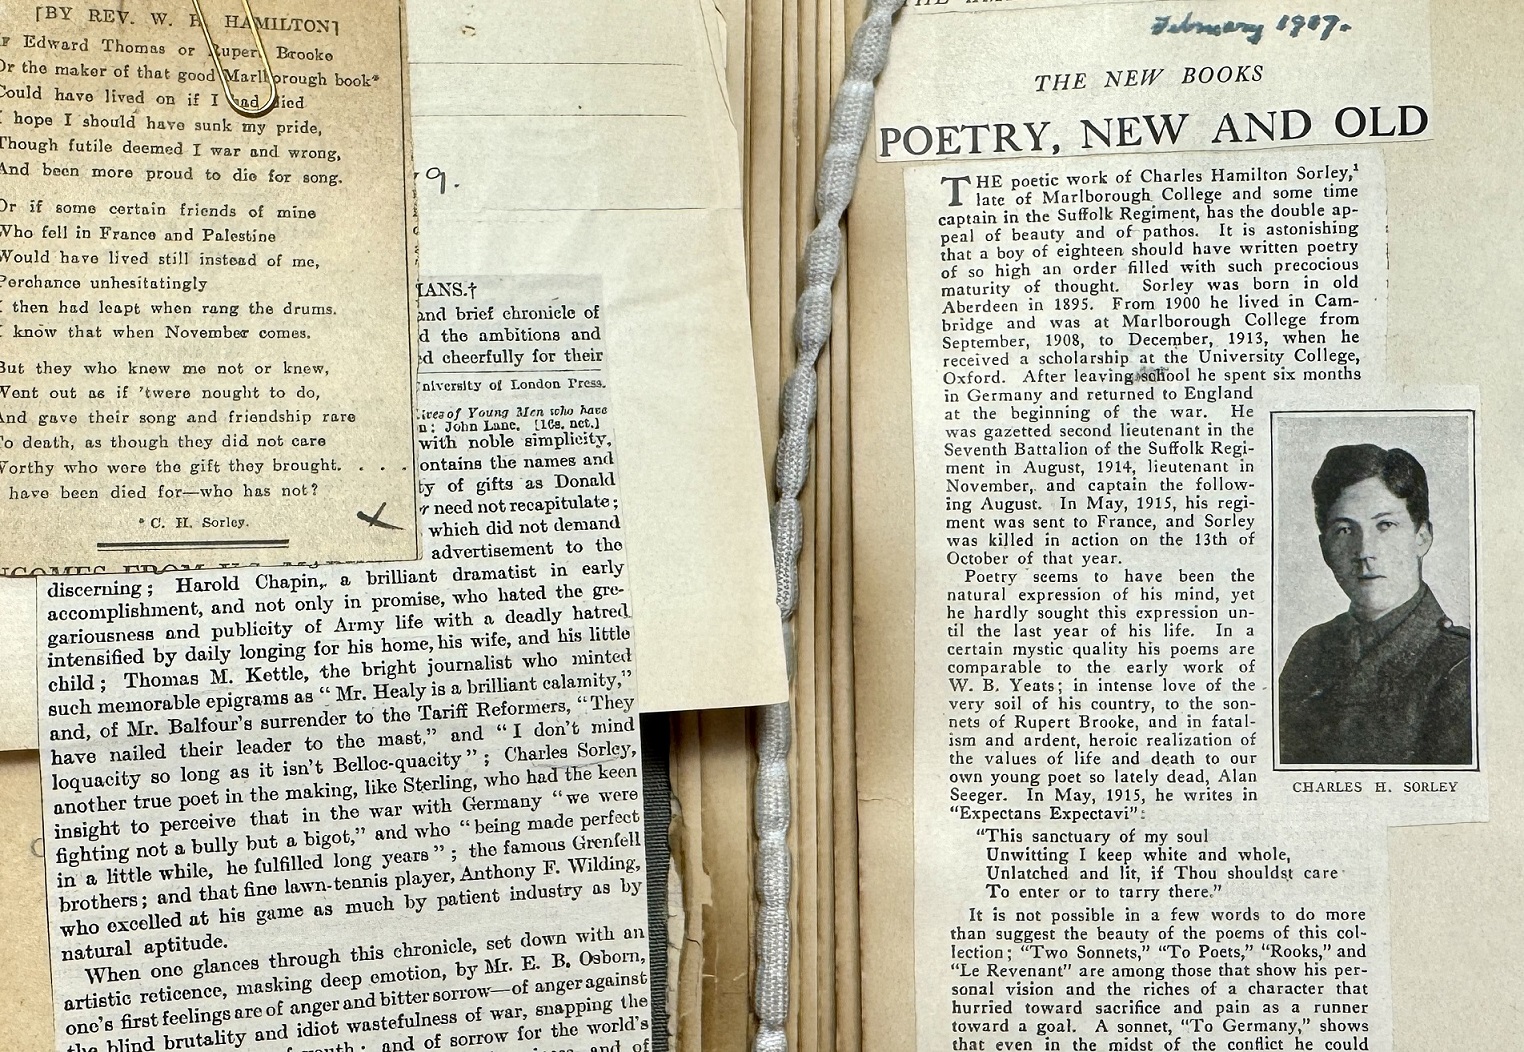 [BY REV. W. H. HAMILTON]
Edward Thomas or Rupert Brooke
Or the maker of that good Marlborough book*
Could have lived on if I had died
I hope I should have sunk my pride,
Though futile deemed I war and wrong,
And been more proud to die for song.
Or if some certain friends of mine
Who fell in France and Palestine
Would have lived still instead of me,
Perchance unhesitatingly
I then had leapt when rang the drums.
I know that when November comes.
But they who knew me not or knew,
Went out as if 'twere nought to do,
And gave their song and friendship rare
To death, as though they did not care
Worthy who were the gift they brought. . . .
I have been died for—who has not?
* C. H. Sorley.
9.
IANS.†
and brief chronicle of
d the ambitions and
d cheerfully for their
University of London Press.
Lives of Young Men who have
n: John Lane. [16s. net.]
with noble simplicity,
ontains the names and
ty of gifts as Donald
r need not recapitulate;
which did not demand
advertisement to the
discerning; Harold Chapin, a brilliant dramatist in early
accomplishment, and not only in promise, who hated the gre-
gariousness and publicity of Army life with a deadly hatred
intensified by daily longing for his home, his wife, and his little
child; Thomas M. Kettle, the bright journalist who minted
such memorable epigrams as "Mr. Healy is a brilliant calamity,"
and, of Mr. Balfour's surrender to the Tariff Reformers, "They
have nailed their leader to the mast," and "I don't mind
loquacity so long as it isn't Belloc-quacity"; Charles Sorley,
another true poet in the making, like Sterling, who had the keen
insight to perceive that in the war with Germany "we were
fighting not a bully but a bigot," and who "being made perfect
in a little while, he fulfilled long years"; the famous Grenfell
brothers; and that fine lawn-tennis player, Anthony F. Wilding,
who excelled at his game as much by patient industry as by
natural aptitude.
When one glances through this chronicle, set down with an
artistic reticence, masking deep emotion, by Mr. E. B. Osborn,
one's first feelings are of anger and bitter sorrow—of anger against
the blind brutality and idiot wastefulness of war, snapping the
and of sorrow for the world's
and of
February 1917.
THE NEW BOOKS
POETRY, NEW AND OLD
THE poetic work of Charles Hamilton Sorley,¹
late of Marlborough College and some time
captain in the Suffolk Regiment, has the double ap-
peal of beauty and of pathos. It is astonishing
that a boy of eighteen should have written poetry
of so high an order filled with such precocious
maturity of thought. Sorley was born in old
Aberdeen in 1895. From 1900 he lived in Cam-
bridge and was at Marlborough College from
September, 1908, to December, 1913, when he
received a scholarship at the University College,
Oxford. After leaving school he spent six months
in Germany and returned to England
at the beginning of the war. He
was gazetted second lieutenant in the
Seventh Battalion of the Suffolk Regi-
ment in August, 1914, lieutenant in
November, and captain the follow-
ing August. In May, 1915, his regi-
ment was sent to France, and Sorley
was killed in action on the 13th of
October of that year.
Poetry seems to have been the
natural expression of his mind, yet
he hardly sought this expression un-
til the last year of his life. In a
certain mystic quality his poems are
comparable to the early work of
W. B. Yeats; in intense love of the
very soil of his country, to the son-
nets of Rupert Brooke, and in fatal-
ism and ardent, heroic realization of
the values of life and death to our
own young poet so lately dead, Alan
Seeger. In May, 1915, he writes in
"Expectans Expectavi":
"This sanctuary of my soul
Unwitting I keep white and whole,
Unlatched and lit, if Thou shouldst care
To enter or to tarry there."
It is not possible in a few words to do more
than suggest the beauty of the poems of this col-
lection; "Two Sonnets," "To Poets," "Rooks," and
"Le Revenant" are among those that show his per-
sonal vision and the riches of a character that
hurried toward sacrifice and pain as a runner
toward a goal. A sonnet, "To Germany," shows
that even in the midst of the conflict he could
CHARLES H. SORLEY